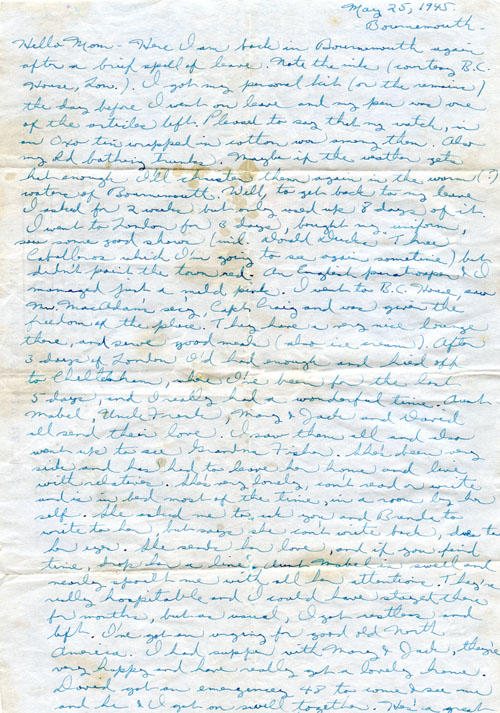 May 25, 1945.
Bournemouth -
Hello Mom - Here I am back in Bournemouth again
after a brief spell of leave. Note the ink (courtesy B.C.
House, Lon.). I got my personal kit (or the remains)
the day before I went on leave and my pen was one
of the articles left. Pleased to say that my watch, in
an Oxo tin wrapped in cotton was among them. Also
my old bathing trunks. Maybe if the weather gets
hot enough I'll them again in the warm (?)
waters of Bournemouth. Well, to get back to my leave
I asked for 2 weeks but only used up 8 days of it.
I went to London for 3 days, bought my uniform,
saw some good shows (incl. Donald Duck's Three
Caballeros which I'm going to see again sometime) but
didn't paint the town red. An English paratrooper & I
managed just a mild pink. I went to B.C. House, saw
Mr. MacAdam's secy, Capt. Craig and was given the
freedom of the place. They have a very nice lounge
there, and serve good meals (also ice cream). After
3 days of London I'd had enough and hied off
to Cheltenham, where I've been for the last
5 days, and I really had a wonderful time. Aunt
Mabel, Uncle Frank, Mary & Jack and David
all send their love. I saw them all and also
went up to see Grandma Fisher. She's been very
sick and has had to leave her home and live
with relatives. She's very lonely, can't read or write
and is in bed most of the time, in a room by her
self. She asked me to ask you and Brenda to
write to her, but says she can't write back, due to
her eyes. She sends her love, and if you find
time, drop her a line. Aunt Mabel is swell and
nearly spoilt me with all her attentions. They're
really hospitable and I could have stayed there
for months, but as usual, I got restless and
left. I've got an urging for good old North
America. I had supper with Mary & Jack, they're
very happy and have really got a lovely home.
David got an emergency 48 to come & see me
and he & I got on swell together. He's a great